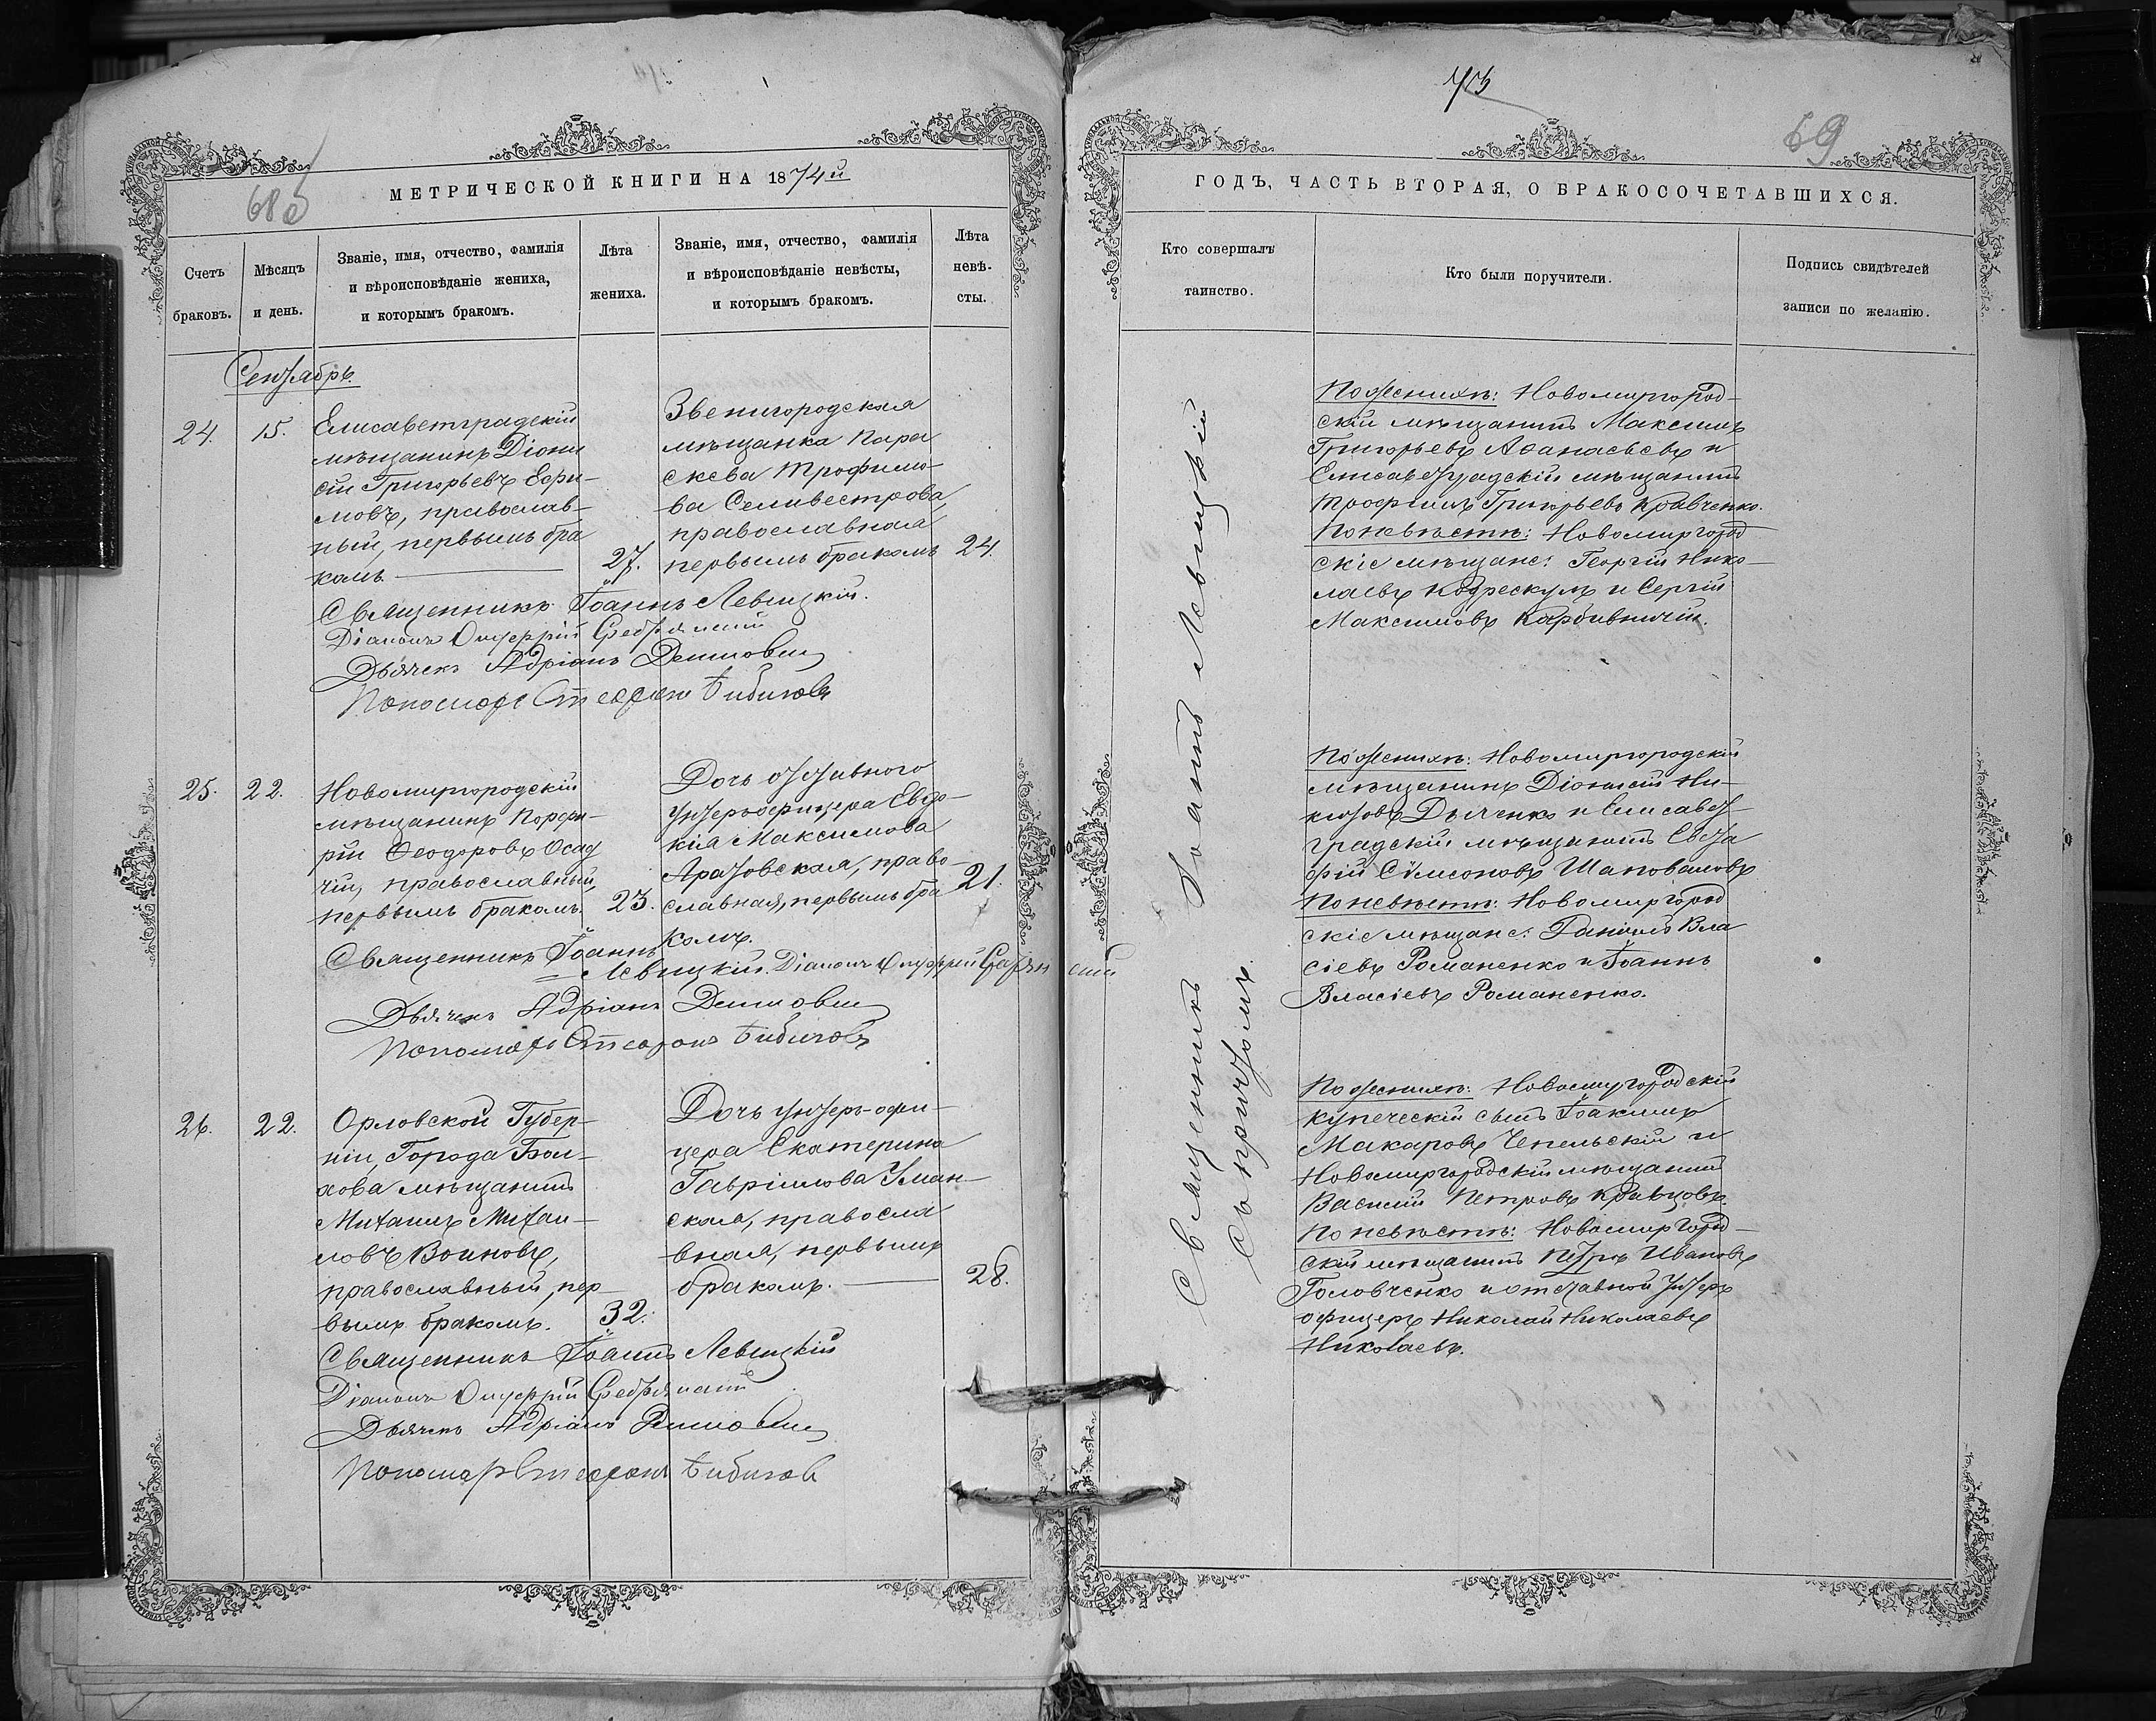 68б
МЕТРИЧЕСКОЙ КНИГИ НА 1874й
Счетъ браковъ.
Мѣсяцъ и день.
Званіе, имя, отчество, фамилія
и вѣроисповѣданіе жениха,
и которымъ бракомъ.
Лѣта
жениха.
Званіе, имя, отчество, фамилія
и вѣроисповѣданіе невѣсты,
и которымъ бракомъ.
Лѣта
невѣ-
сты.
Сентябрь.
24. 15.
Елисаветградскій
мѣщанинъ Діони
сій Григорьевъ Ефи-
мовъ, православ-
ный, первымъ бра
комъ
27.
Звенигородская
мѣщанка Пара
скева Трофимо-
ва Селивестрова,
православная
первымъ бракомъ
24.
Священникъ Іоаннъ Левицкій.
Діаконъ Онуфрій
Дьячекъ Адріанъ
Пономарь Стефанъ Бибиковъ
25. 22.
Новомиргородскій
мѣщанинъ Порфи-
рій Ѳеодоровъ Осад
чій, православный,
первымъ бракомъ.
23.
Дочь отставного
унтеръофицера Евдо-
кія Максимова
Аратовская, право-
славная, первымъ бра
комъ.
21.
Священникъ Іоаннъ
Левицкій. Діаконъ Онуфрій
Дьячекъ Адріанъ
Пономарь Стефанъ Бибиковъ
26. 22.
Орловской Губер-
ніи, Города Бол-
хова мѣщанинъ
Михаилъ Михаи-
ловъ Воиновъ,
православный, пер-
вымъ бракомъ.
32.
Дочь унтеръ-офи-
цера Екатерина
Гавріилова Уман-
ская, правосла
вная, первымъ
бракомъ.
28.
Священникъ Іоаннъ Левицкій
Діаконъ Онуфрій
Дьячекъ Адріанъ
Пономарь Стефанъ Бибиков
73
69
ГОДЪ, ЧАСТЬ ВТОРАЯ, О БРАКОСОЧЕТАВШИХСЯ.
Кто совершалъ
таинство.
Кто были поручители.
Подпись свидѣтелей
записи по желанію.
Священникъ Іоаннъ Левицкій
съ причтомъ.
По женихѣ: Новомиргород-
скій мѣщанинъ Максимъ
Григорьевъ Аѳанасьевъ и
Елисаветградскій мѣщанинъ
Трофимъ Григорьевъ Кравченко.
По невѣстѣ: Новомиргород
скіе мѣщане: Георгій Нико-
лаевъ Кодрескулъ и Сергій
Максимовъ Карбивничій.
По женихѣ: Новомиргородскій
мѣщанинъ Діонисій Ни-
китовъ Дьяченко и Елисавет-
градскій мѣщанинъ Евста
фій Сѵмеоновъ Шаповаловъ
По невѣстѣ: Новомиргород
скіе мѣщане: Даніилъ Вла
сіевъ Романенко и Іоаннъ
Власіевъ Романенко.
По женихѣ: Новомиргородскій
купеческій сынъ Іоакимъ
Макаровъ Чепельскій и
Новомиргородскій мѣщанинъ
Василій Петровъ Кравцовъ.
По невѣстѣ: Новомиргород-
скій мѣщанинъ Петръ Ивановъ
Головченко и отставной унтеръ
офицеръ Николай Николаевъ
Николаевъ.